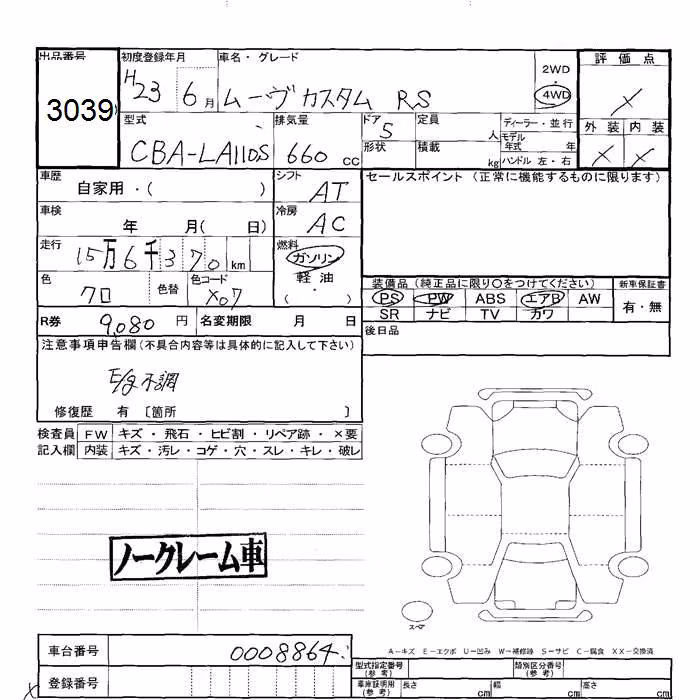 出品番号 初度登録年月 車名・グレード 評価点
3039 H23 6月 ムーヴカスタム RS 2WD 4WD ×
型式 排気量 ドア 定員 ディーラー・並行 外装 内装
CBA-LA110S 660 cc 5 人 モデル年式 年 × ×
形状 積載 kg ハンドル 左・右
車歴 自家用・( ) シフト AT セールスポイント (正常に機能するものに限ります)
車検 年 月( 日) 冷房 AC
走行 15万6千370 km 燃料 ガソリン
軽油
( ・ )
色 クロ 色替 色コード X07 装備品 (純正品に限り〇をつけてください) 新車保証書
PS PW ABS エアB AW 有・無
SR ナビ TV カワ
R券 9,080 円 名変期限 月 日 後日品
注意事項申告欄(不具合内容等は具体的に記入して下さい)
E/g不調
修復歴 有 〔箇所 〕
検査員 FW キズ・飛石・ヒビ割・リペア跡・×要
記入欄 内装 キズ・汚レ・コゲ・穴・スレ・キレ・破レ
ノークレーム車
スペア
A−キズ E−エクボ U−凹み W−補修跡 S−サビ C−腐食 XX−交換済
車台番号 0008864 型式指定番号(参考) 類別区分番号(参考)
登録番号 車庫証明用(参考) 長さ cm 幅 cm 高さ cm